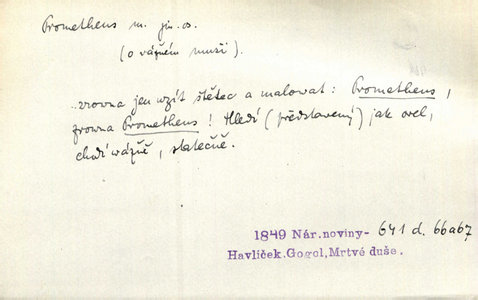 Prometheus m. jm. os.
(o vážném muži).
..zrovna jen vzít štětec a malovat: Prometheus,
zrowna Prometheus! Hledí (představený) jak orel,
chodí wážně, statečně.
1849 Nár.noviny- 641 d. 66a67
Havlíček.Gogol,Mrtvé duše.